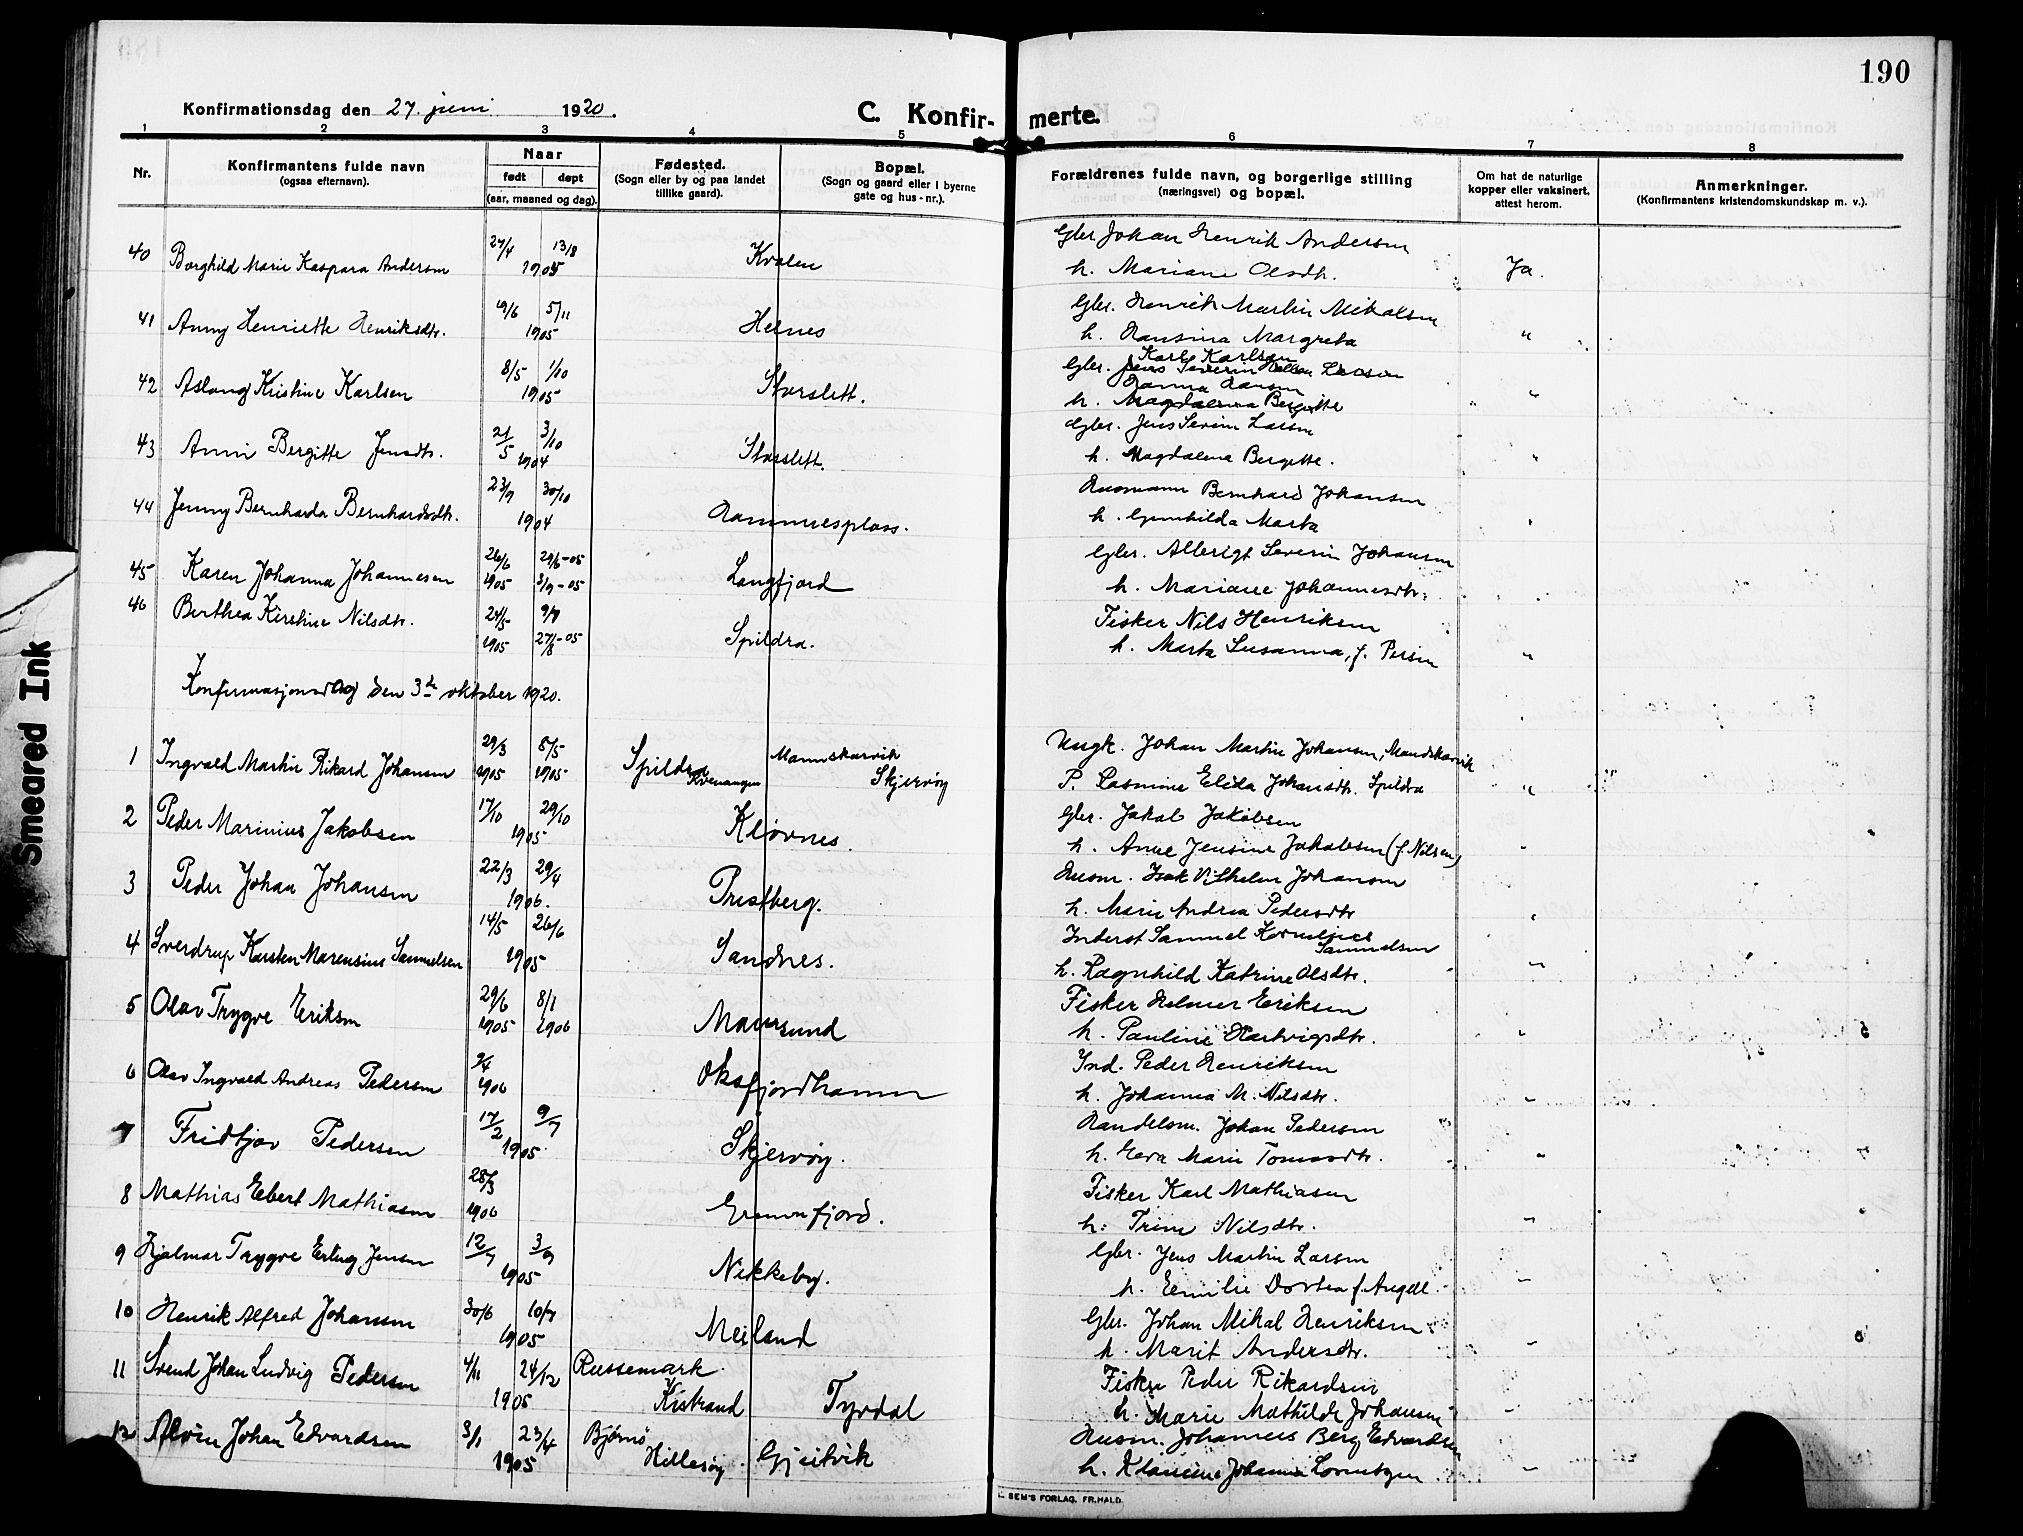 190
Konfirmationsdag den 27. juni 1920.
C. Konfir- merte.
1 2 3 4 5 6 7 8
Nr.
Konfirmantens fulde navn
(ogsaa efternavn).
Naar
født døpt
(aar, maaned og dag).
Fødested.
(Sogn eller by og paa landet
tillike gaard).
Bopæl.
(Sogn og gaard eller i byerne
gate og hus-nr.).
Forældrenes fulde navn, og borgerlige stilling
(næringsvei) og bopæl.
Om hat de naturlige
kopper eller vaksinert.
attest herom.
Anmerkninger.
(Konfirmantens kristendomskundskap m. v.).
40 Borghild Marie Kaspara Andersen 27/4 13/8 1905 Kvalen Gbr Johan Henrik Andersen
h. Mariane Olsdtr. Ja.
41 Anny Henriette Henriksdtr. 19/6 5/11 1905 Helnes Gbr. Henrik Martin Mikalsen
h. Hansina Margreta "
42 Aslaug Kristine Karlsen 8/5 1/10 1905 Storslett. Karl Karlsen
Gbr. Jens Severin Larsen
Hanna Hansen
h. Magdalena Bergitte "
43 Anni Bergitte Jensdtr. 21/5 3/10 1904 Storslett. Gbr. Jens Severin Larsen
h. Magdalena Bergitte. "
44 Jenny Bernharda Bernhardsdtr. 23/9 30/10 1904 Hamnesplass. Husmann Bernhard Johansen
h. Gunhilda Marta "
45 Karen Johanna Johannesen 26/6 1905 29/6-05 3/9-05 Langfjord Gbr. Allerigt Severin Johansen
h. Mariane Johannesdtr. "
46 Berthea Kirstine Nilsdtr. 24/5 1905 9/7 27/8-05 Spildra. Fisker Nils Henriksen
h. Marta Susanna, f. Persen "
Konfirmasjonsdag den 3de oktober 1920.
1 Ingvald Martin Rikard Johansen 29/3 1905 8/5 1905 Spildra Kvenangen Mannskarvik Skjervøy Ungk. Johan Martin Johansen, Mandskarvik
P. Rasmine Elida Johansdtr. Spildra "
2 Peder Marinius Jakobsen 17/10 29/10 1905 Kløvnes. Gbr. Jakob Jakobsen
h. Anne Jensine Jakobsen (f. Nilsen) "
3 Peder Johan Johansen 22/3 29/4 1906. Prestberg. Husm. Isak Vilhelm Johansen
h. Marie Andrea Pedersdtr "
4 Sverdrup Karsten Marensius Samuelsen 14/5 26/6 1905 Sandnes. Inderst Samuel Kornelius
Samuelsen
h. Ragnhild Katrine Olsdtr. "
5 Olav Trygve Eriksen 29/6 1905 8/1 1906 Maursund Fisker Helmer Eriksen
h. Pauline Hartvigsdtr. "
6 Olav Ingvald Andreas Pedersen 2/4 1906 Oksfjordhamn Ind. Peder Henriksen
h. Johanna M. Nilsdtr. "
7 Fridtjov Pedersen 17/2 9/7 1905 Skjervøy. Handelsm. Johan Pedersen
h. Eva Marie Tomasdtr. "
8 Mathias Ebert Mathiasen 28/3 1906 Grunnfjord. Fisker Karl Mathiasen
h. Trine Nilsdtr. "
9 Hjalmar Trygve Erling Jensen 12/7 3/9 1905 Nikkeby. Gbr. Jens Martin Larsen
h. Emilie Dortea f. Angell. "
10 Henrik Alfred Johansen 30/6 10/9 1905 Meiland Gbr. Johan Mikal Henriksen
h. Marit Andersdtr. "
11 Svend Johan Ludvig Pedersen 4/11 24/12 1905 Russemark. Kistrand Tyvdal Fisker Peder Rikardsen
h. Marie Mathilde Johansen "
12 Alvin Johan Edvardsen 3/1 23/4 1905 Bjørnø Hillesøy Gjeitvik Husm. Johannes Berg Edvardsen
h. Klausine Johanna Lorentzen "
SEM'S FORLAG, FR.HALD
Smeared Ink